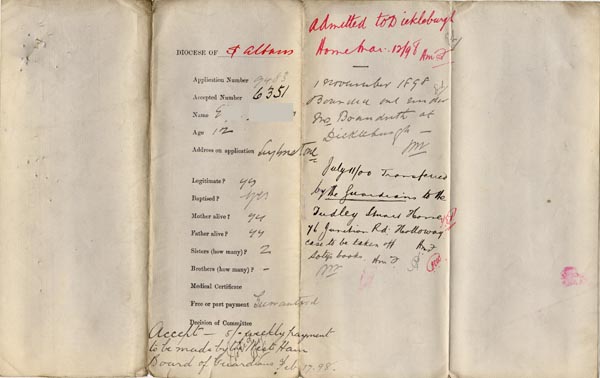 DIOCESE OF St Albans
Application Number 9488
Accepted Number 6351
Name E
Age 12
Address on application Leytonstone
Legitimate? yes
Baptised? yes
Mother alive? yes
Father alive? yes
Sisters (how many)? 2
Brothers (how many)? -
Medical Certificate
Free or part payment Guaranteed
Decision of Committee
Accept - 5/- weekly payment
to be made by the West Ham
Board of Guardians Feb 17. 98.
Admitted to Dickleburgh
Home Mar. 12/98
1 November 1898
Boarded out under
Mrs Brandreth at
Dickleburgh -
July 11/00 Transferred
by the Guardians to the
Dudley Stuart Home
76 Junction Rd. Holloway
case to be taken off
books.